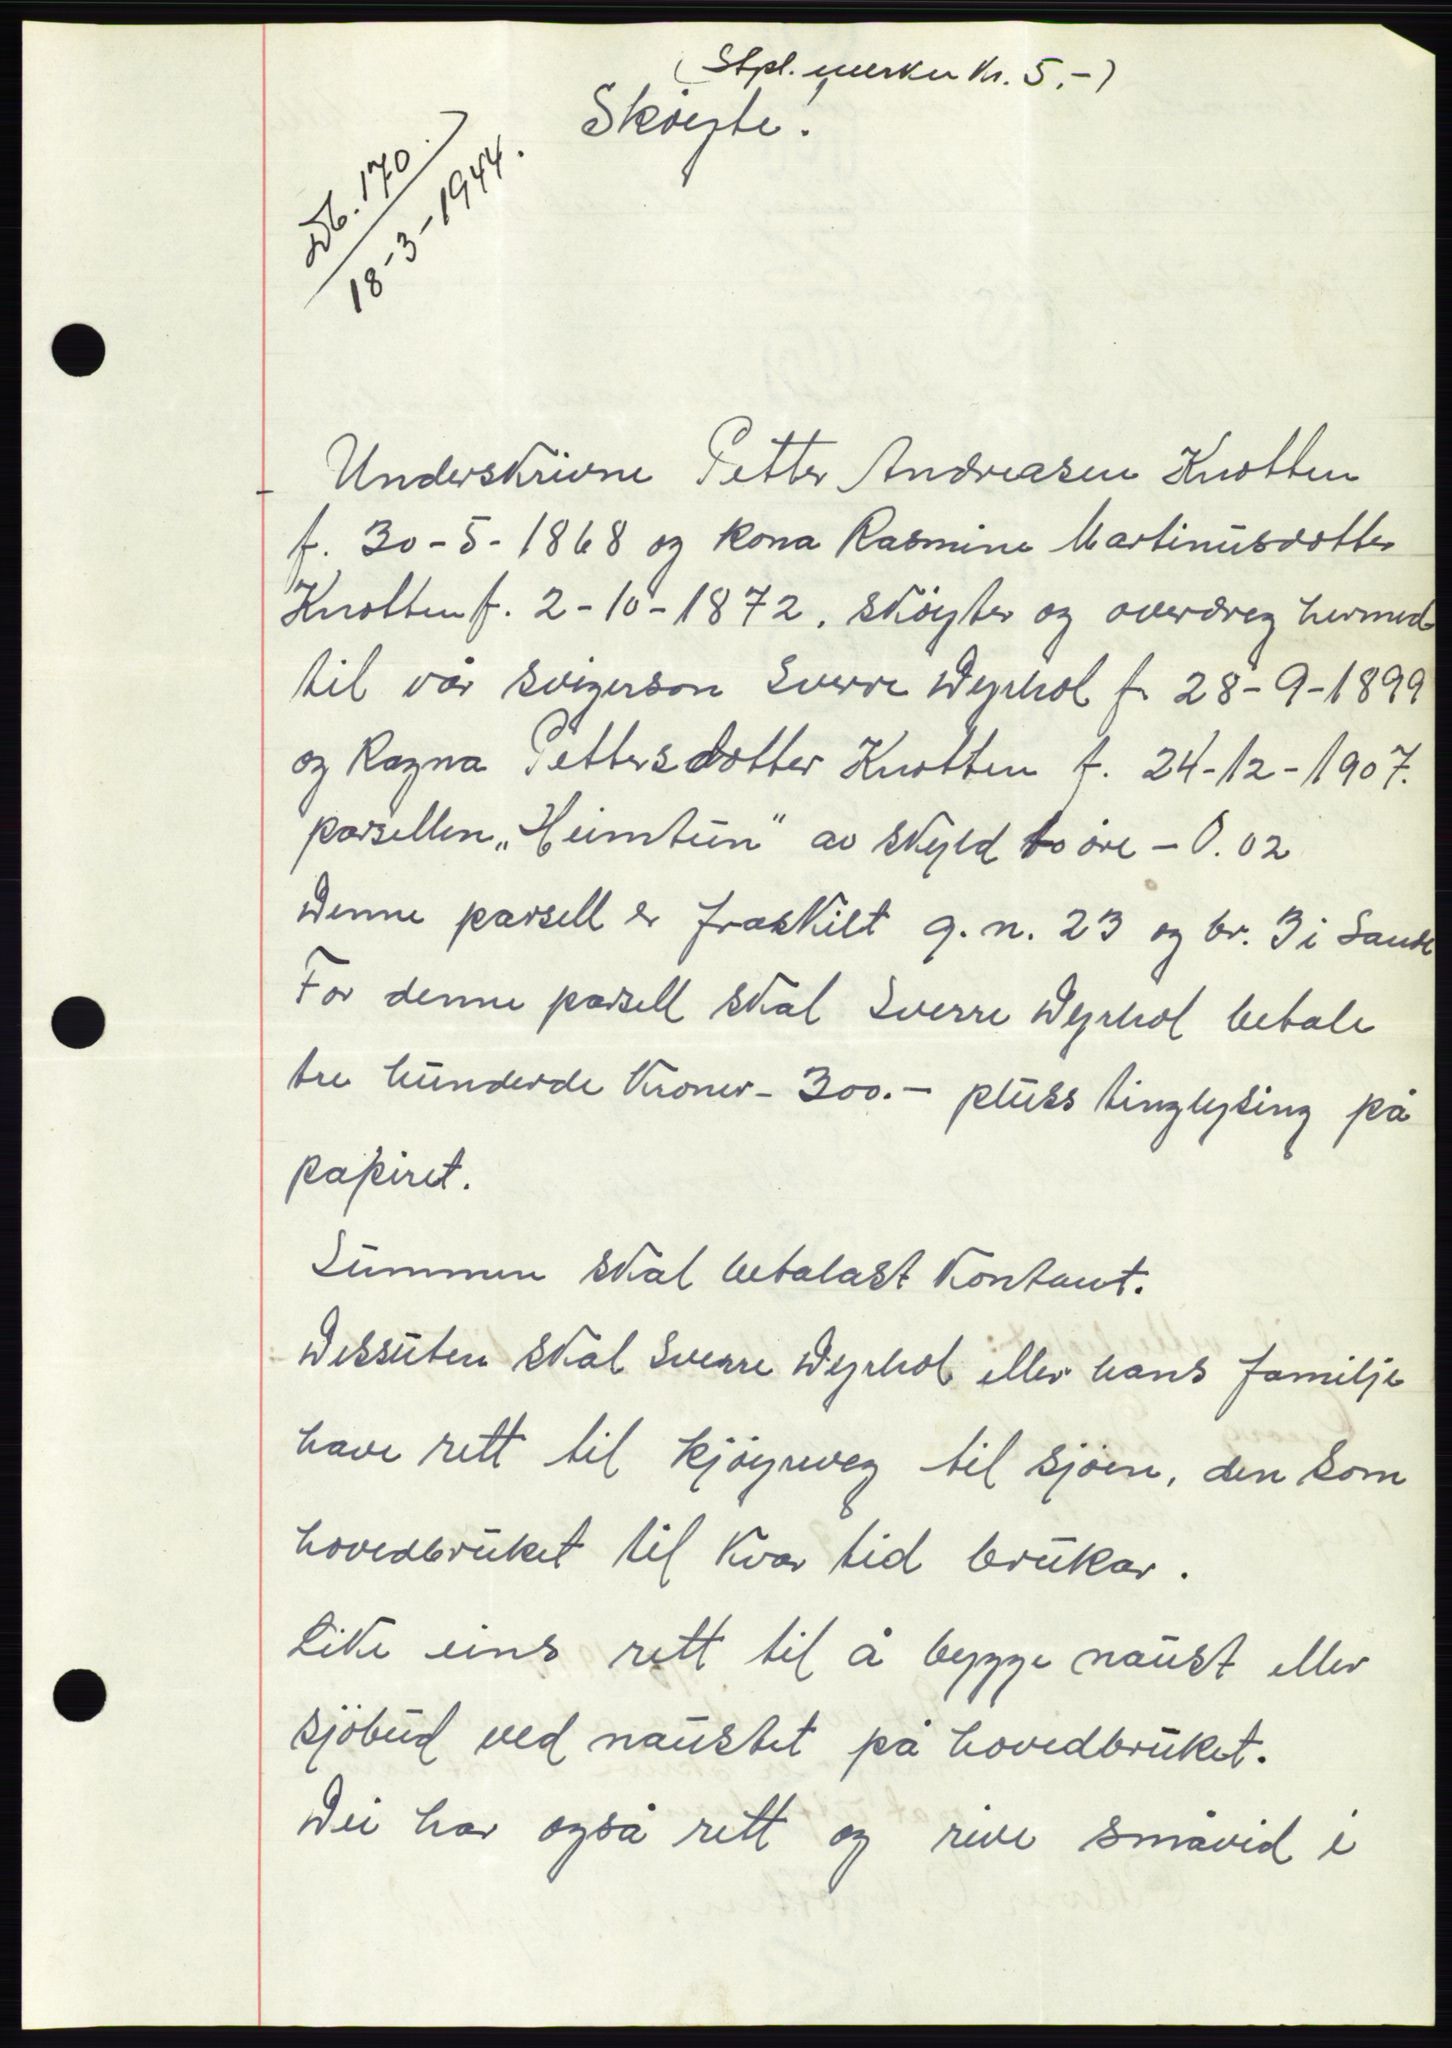 (Stpl. merker Kr. 5.-)
Skøyte!
Db. 170.
18-3-1944.
Underskrivne Petter Andreasen Knotten
f. 30-5-1868 og kona Rasmine Martinusdotter
Knotten f. 2-10-1872, skøyter og overdreg hermed
til vår svigerson Sverre Dyrhol f. 28-9-1899
og Ragna Pettersdotter Knotten f. 24-12-1907.
parsellen „Heimtun" av skyld to øre - 0.02
Denne parsell er fraskilt g.n. 23 og br. 3 i Sande
For denne parsell skal Sverre Dyrhol betale
tre hunderde kroner - 300.- pluss tinglysing på
papiret.
Summen skal betalast kontant.
Dessuten skal Sverre Dyrhol eller hans familje
have rett til kjøyreveg til sjøen, den som
hovedbruket til kvar tid brukar.
Like eins rett til å bygge naust eller
sjøbud ved naustet på hovedbruket.
Dei har også rett og rive småvid i